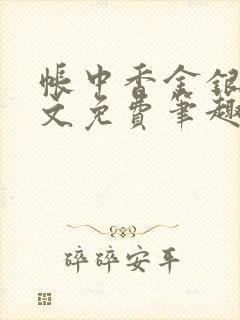 帐中香金银
文免费笔趣
碎碎安平